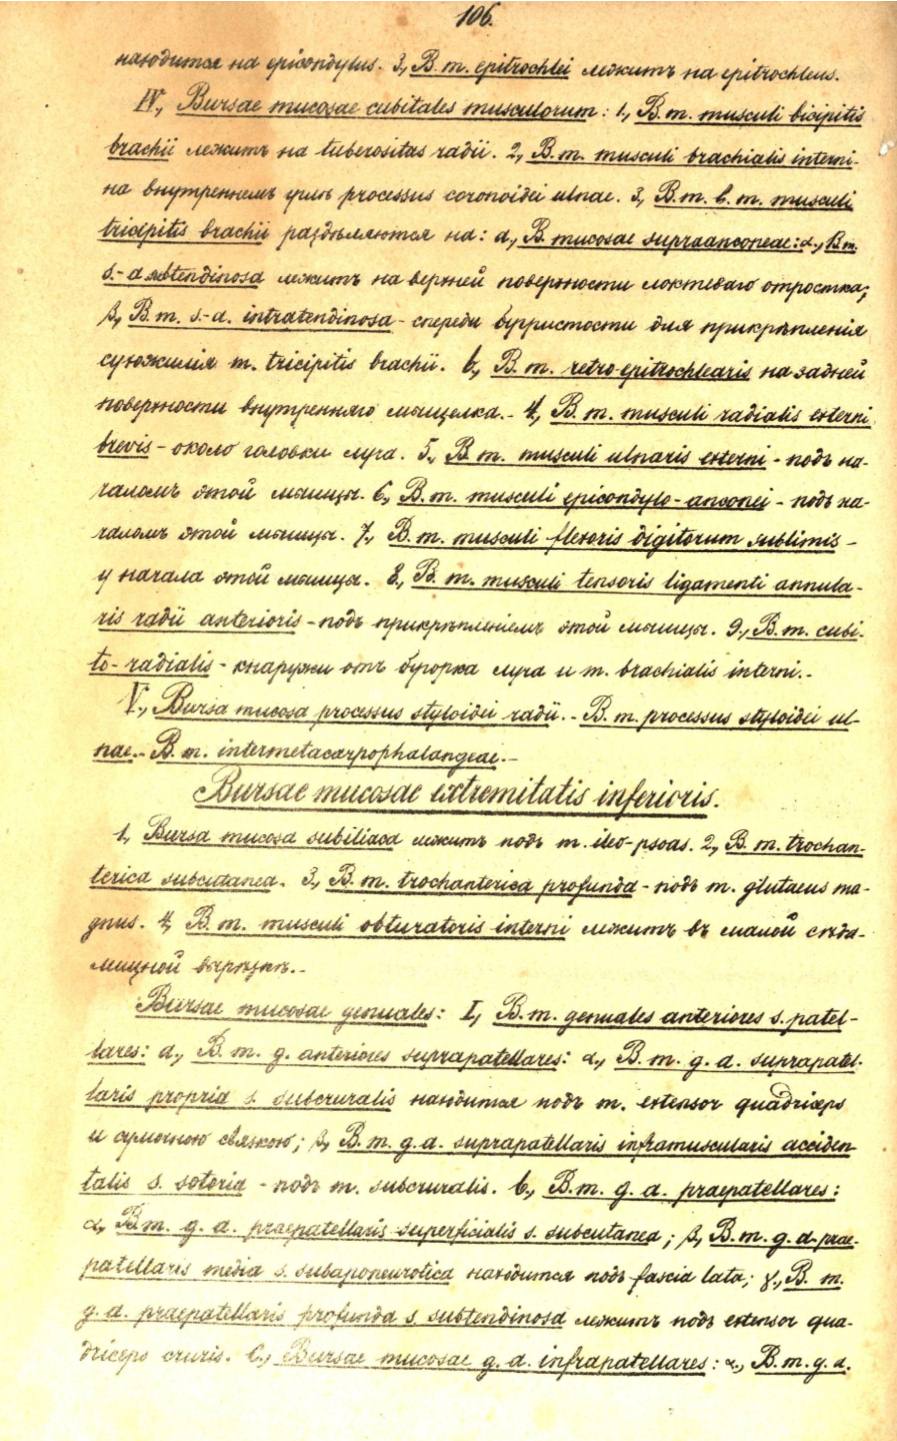 106.
находится на epicondylus. 3, B. m. epitrochlei лежитъ на epitrochleus.
IV., Bursae mucosae cubitales musculorum: 1, B. m. musculi bicipitis
brachii лежитъ на tuberositas radii. 2, B. m. musculi brachialis interni-
на внутреннемъ углѣ processus coronoidei ulnae. 3, B. m. b. m. musculi
tricipitis brachii раздѣляются на: a, B. mucosae supraanconeae: α, B. m.
s.-a subtendinosa лежитъ на верхней поверхности локтеваго отростка;
β, B. m. s.-a. intratendinosa - спереди бугристости для прикрѣпленія
сухожилія m. tricipitis brachii. b, B. m. retro-epitrochlearis на задней
поверхности внутренняго мыщелка.- 4, B. m. musculi radialis externi
brevis - около головки луча. 5, B. m. musculi ulnaris externi - подъ на-
чаломъ этой мышцы. 6, B. m. musculi epicondylo-anconei - подъ на-
чаломъ этой мышцы. 7, B. m. musculi flexoris digitorum sublimis -
у начала этой мышцы. 8, B. m. musculi tensoris ligamenti annula-
ris radii anterioris - подъ прикрѣпленіемъ этой мышцы. 9, B. m. cubi-
to-radialis - кнаружи отъ бугорка луча и m. brachialis interni.-
V., Bursa mucosa processus styloidei radii.- B. m. processus styloidei ul-
nae.- B. m. intermetacarpophalangeae.-
Bursae mucosae extremitatis inferioris.
1, Bursa mucosa subiliaca лежитъ подъ m. ileo-psoas. 2, B. m. trochan-
terica subcutanea. 3, B. m. trochanterica profunda - подъ m. glutaeus ma-
gnus. 4, B. m. musculi obturatoris interni лежитъ въ малой сѣда-
лищной вырѣзкѣ.-
Bursae mucosae genuales: I, B. m. genuales anteriores s. patel-
lares: a, B. m. g. anteriores suprapatellares: α, B. m. g. a. suprapatel-
laris propria s. subcruralis находится подъ m. extensor quadriceps
и сумочною связкою; β, B. m. g. a. suprapatellaris inframuscularis acciden
talis s. soteria - подъ m. subcruralis. b, B. m. g. a. praepatellares:
α, B. m. g. a. praepatellaris superficialis s. subcutanea; β, B. m. g. a. prae-
patellaris media s. subaponeurotica находится подъ fascia lata; γ, B. m.
g. a. praepatellaris profunda s. subtendinosa лежитъ подъ extensor qua-
driceps cruris. c, Bursae mucosae g. a. infrapatellares: α, B. m. g. a.